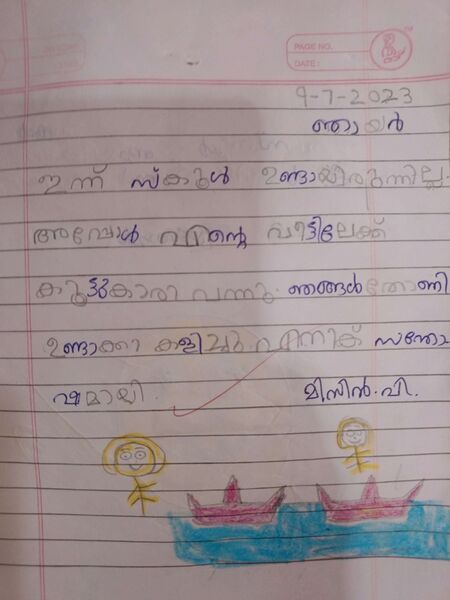 PAGE NO.
DATE:
9-7-2023
ഞായർ
ഇന്ന് സ്കൂൾ ഉണ്ടായിരുന്നില്ല.
അപ്പോൾ എന്റെ വീട്ടിലേക്ക്
കൂട്ടുകാരി വന്നു. ഞങ്ങൾ തോണി
ഉണ്ടാക്കി കളിച്ചു എനിക് സന്തോ
ഷമായി.
മിസിൻ. വി.